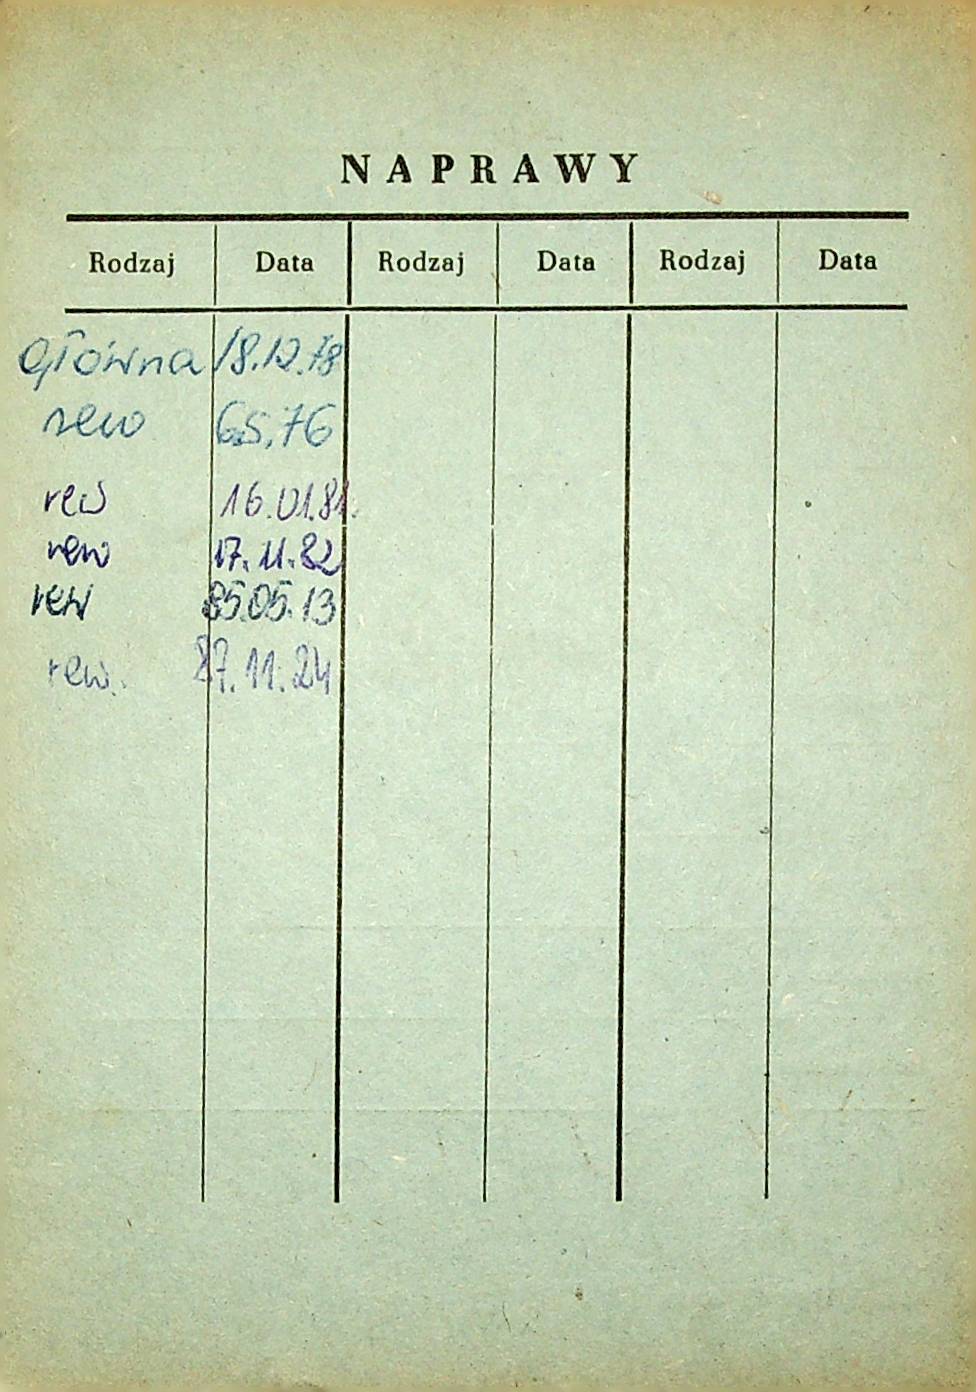 NAPRAWY
Rodzaj Data Rodzaj Data Rodzaj Data
główna 18.12.78
rew 6.5.76
rew 16.01.81.
rew 17.11.82
rew 85.05.13
rew. 87.11.24